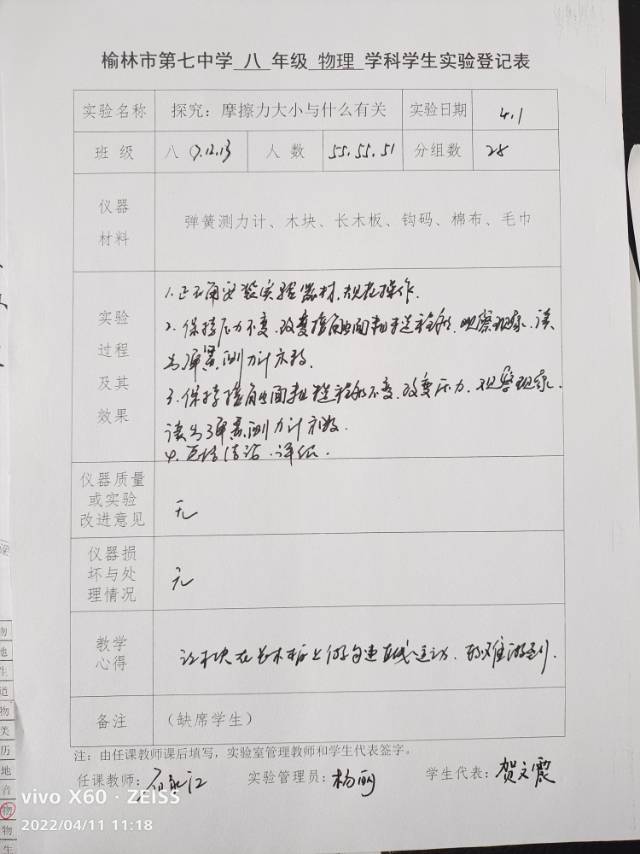 榆林市第七中学 八 年级 物理 学科学生实验登记表
实验名称 探究:摩擦力大小与什么有关 实验日期 4.1
班 级 八 9.12.13 人 数 55.55.51 分组数 28
仪器
材料
弹簧测力计、木块、长木板、钩码、棉布、毛巾
实验
过程
及其
效果
1.正确安装实验器材,规范操作.
2.保持压力不变,改变接触面粗糙程度,观察现象,读
出弹簧测力计示数.
3.保持接触面粗糙程度不变,改变压力,观察现象.
读出弹簧测力计示数.
4.总结结论,评估.
仪器质量
或实验
改进意见
无
仪器损
坏与处
理情况
无
教学
心得
让木块在长木板上做匀速直线运动,很难做到.
备注 (缺席学生)
注:由任课教师课后填写,实验室管理教师和学生代表签字。
任课教师: 实验管理员:杨丽 学生代表:贺文震
vivo X60 · ZEISS
2022/04/11 11:18
物
地
生
道
物
关
历
地
音
物
物
生